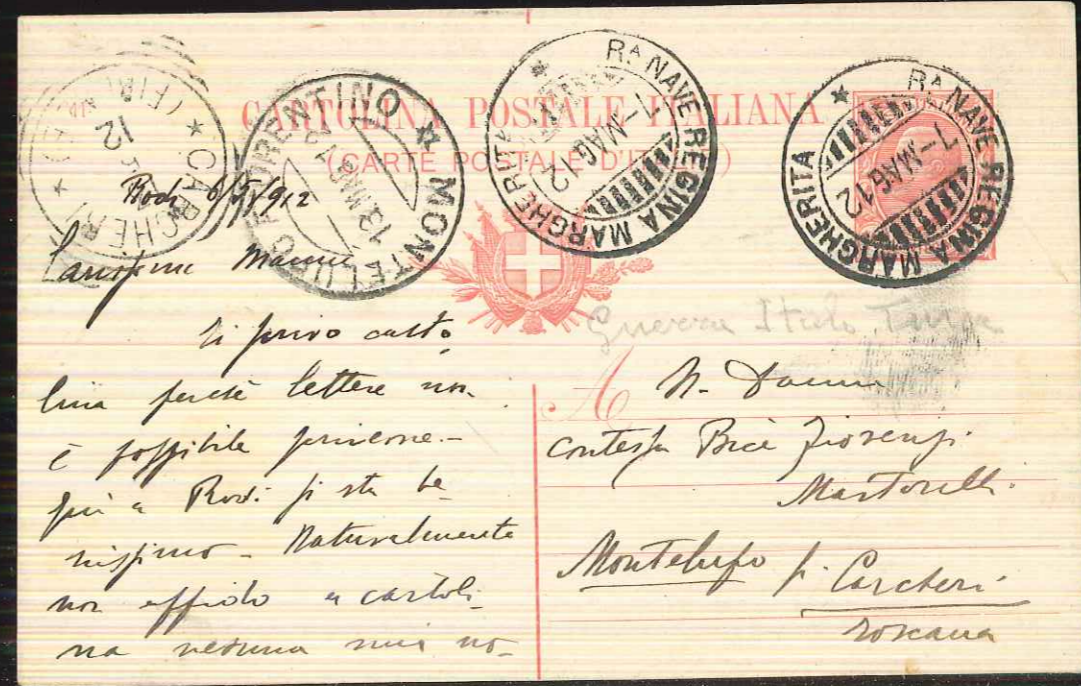 CARTOLINA POSTALE ITALIANA
(CARTE POSTALE D'ITALIE)
Rª NAVE REGINA MARGHERITA
7-MAG 12
Rª NAVE REGINA MARGHERITA
7-MAG 12
MONTELUPO FIORENTINO
13 MAG 12
CARCHERI
(FIRENZE)
12
Rodi 6/5/912
Carissima Mamma
Ti scrivo carto
lina perchè lettere non
è possibile
più a Rodi si sta be-
nissimo - Naturalmente
non affido a cartoli-
na nessuna mia no-
Guerra Italo Turca
A N. Donna
Contessa Bice Fiorenzi
Martorelli
Montelupo p. Carcheri
Toscana